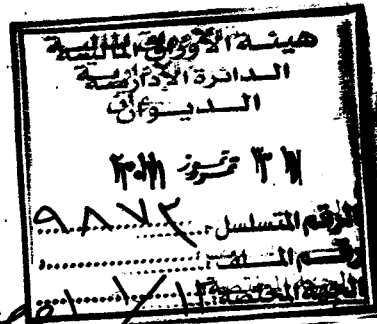 هيئة الأوراق المالية
الدائرة الادارية
الديوان
تموز
الرقم المتسلسل: ٩٨٧٣
رقم الملف:
الجهة المختصة: